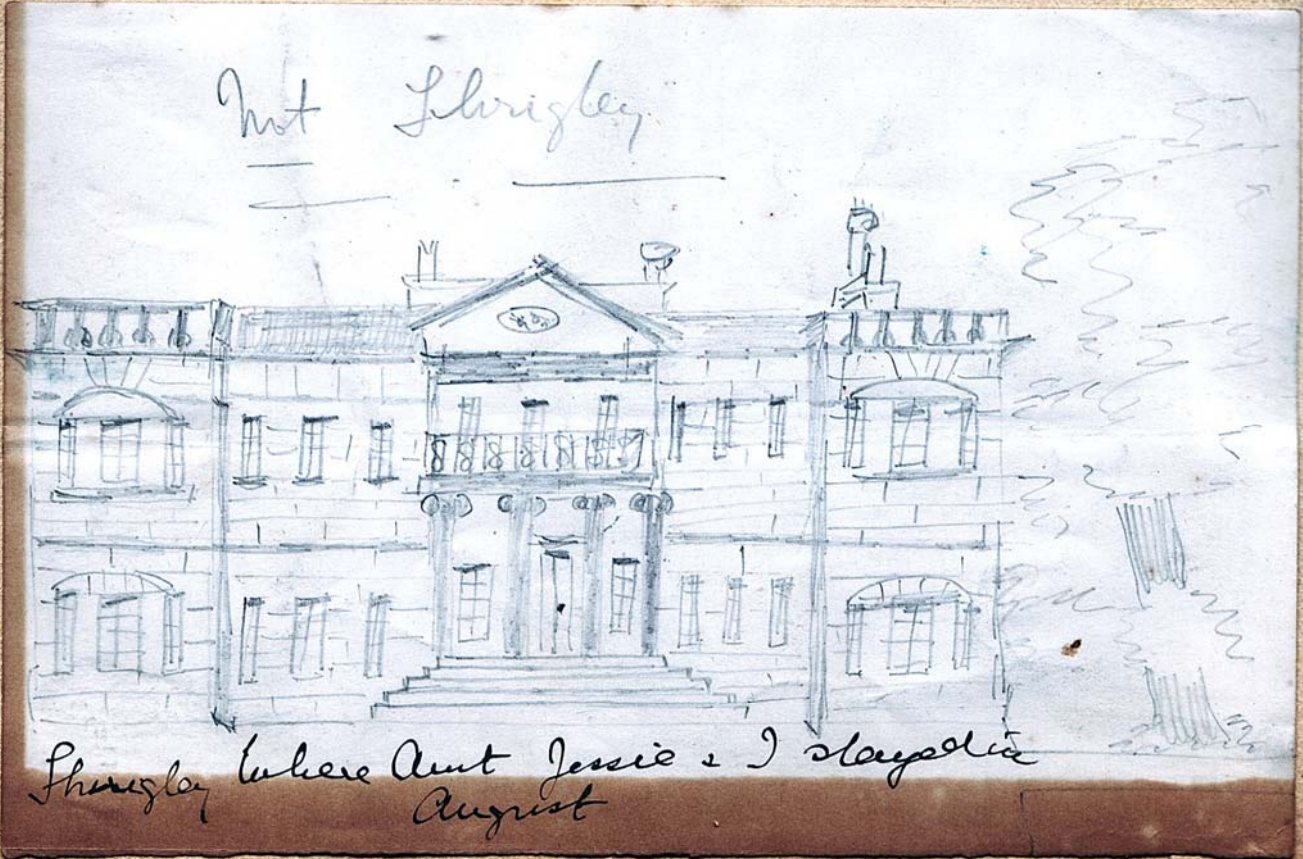 Not Shrigley
Shrigley Where Aunt Jessie & I stayed in
August